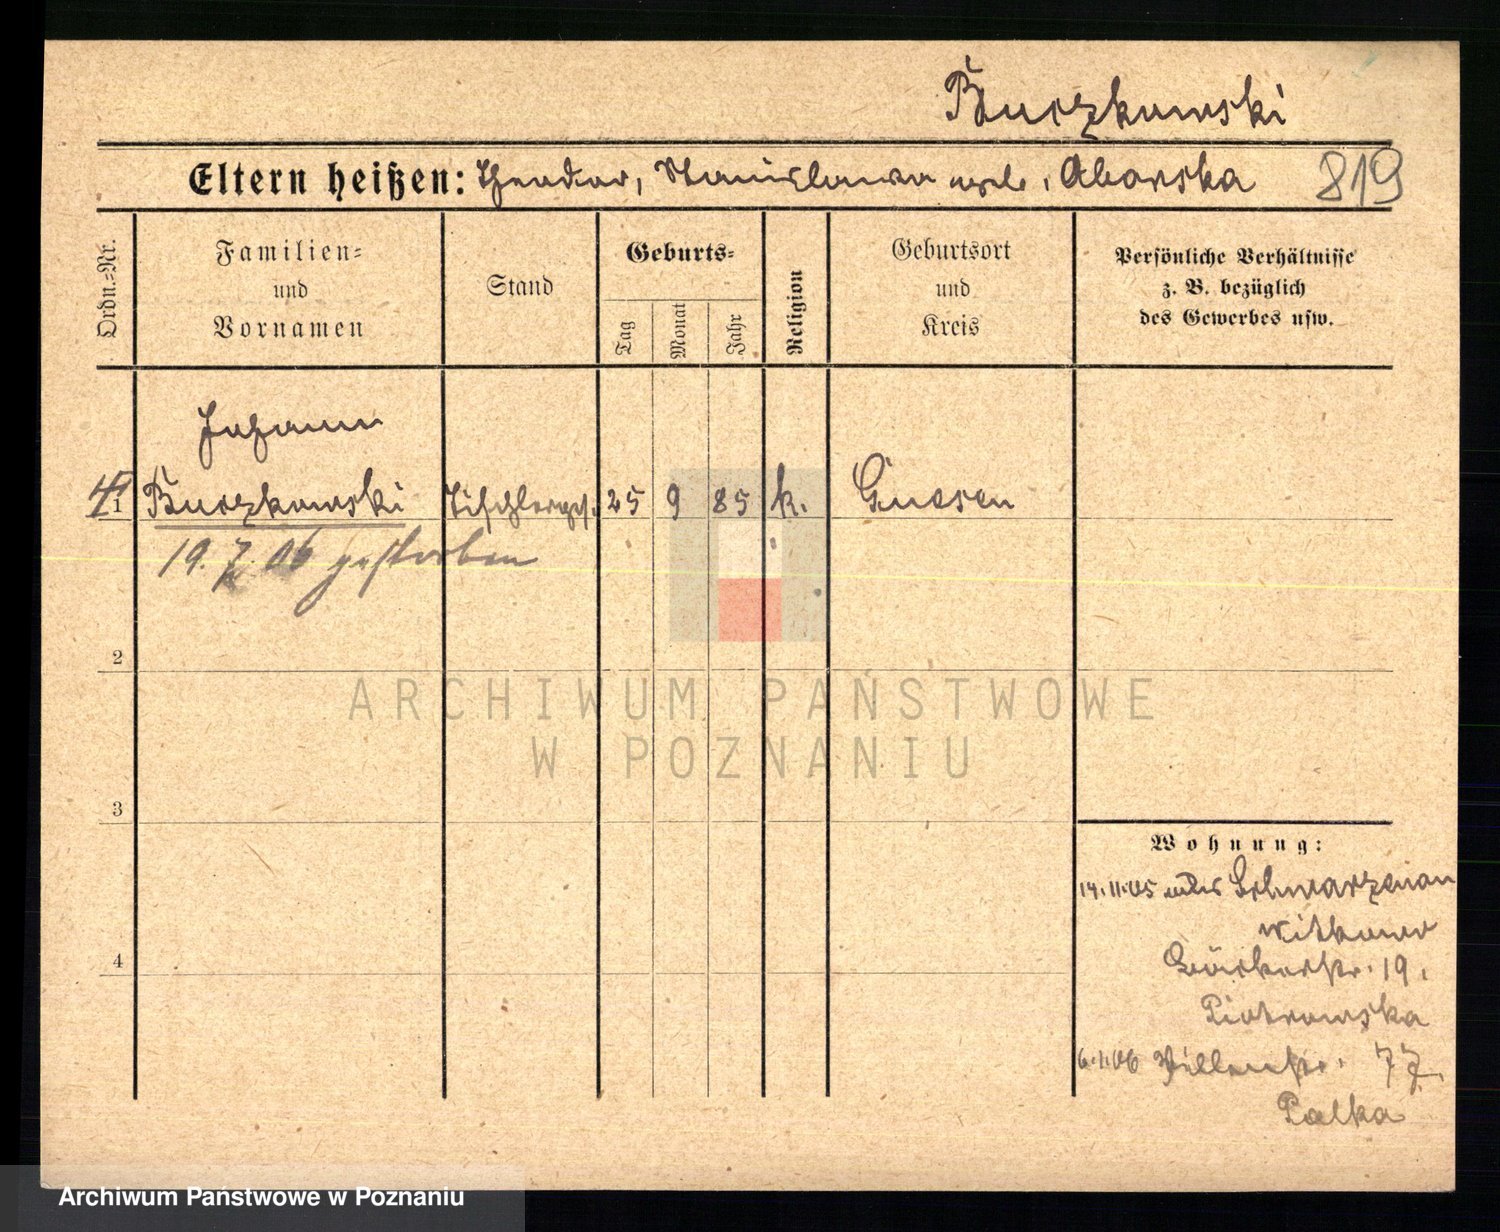 Buczkowski
Eltern heißen: Theodor, Stanislawa geb. Aborska 819
Ordn.-Nr.
Familien-
und
Vornamen
Stand
Geburts-
Tag
Monat
Jahr
Religion
Geburtsort
und
Kreis
Persönliche Verhältnisse
z. B. bezüglich
des Gewerbes usw.
Johann
1 Buczkowski Tischlerges. 25 9 85 k. Gnesen
19. 7. 06 gestorben
2
ARCHIWUM PAŃSTWOWE
W POZNANIU
3
4
Wohnung:
14.11.05 Schwarzenau
Witkowo
Bäckerstr. 19.
Piotrowska
6.1.06 77
Palka
Archiwum Państwowe w Poznaniu